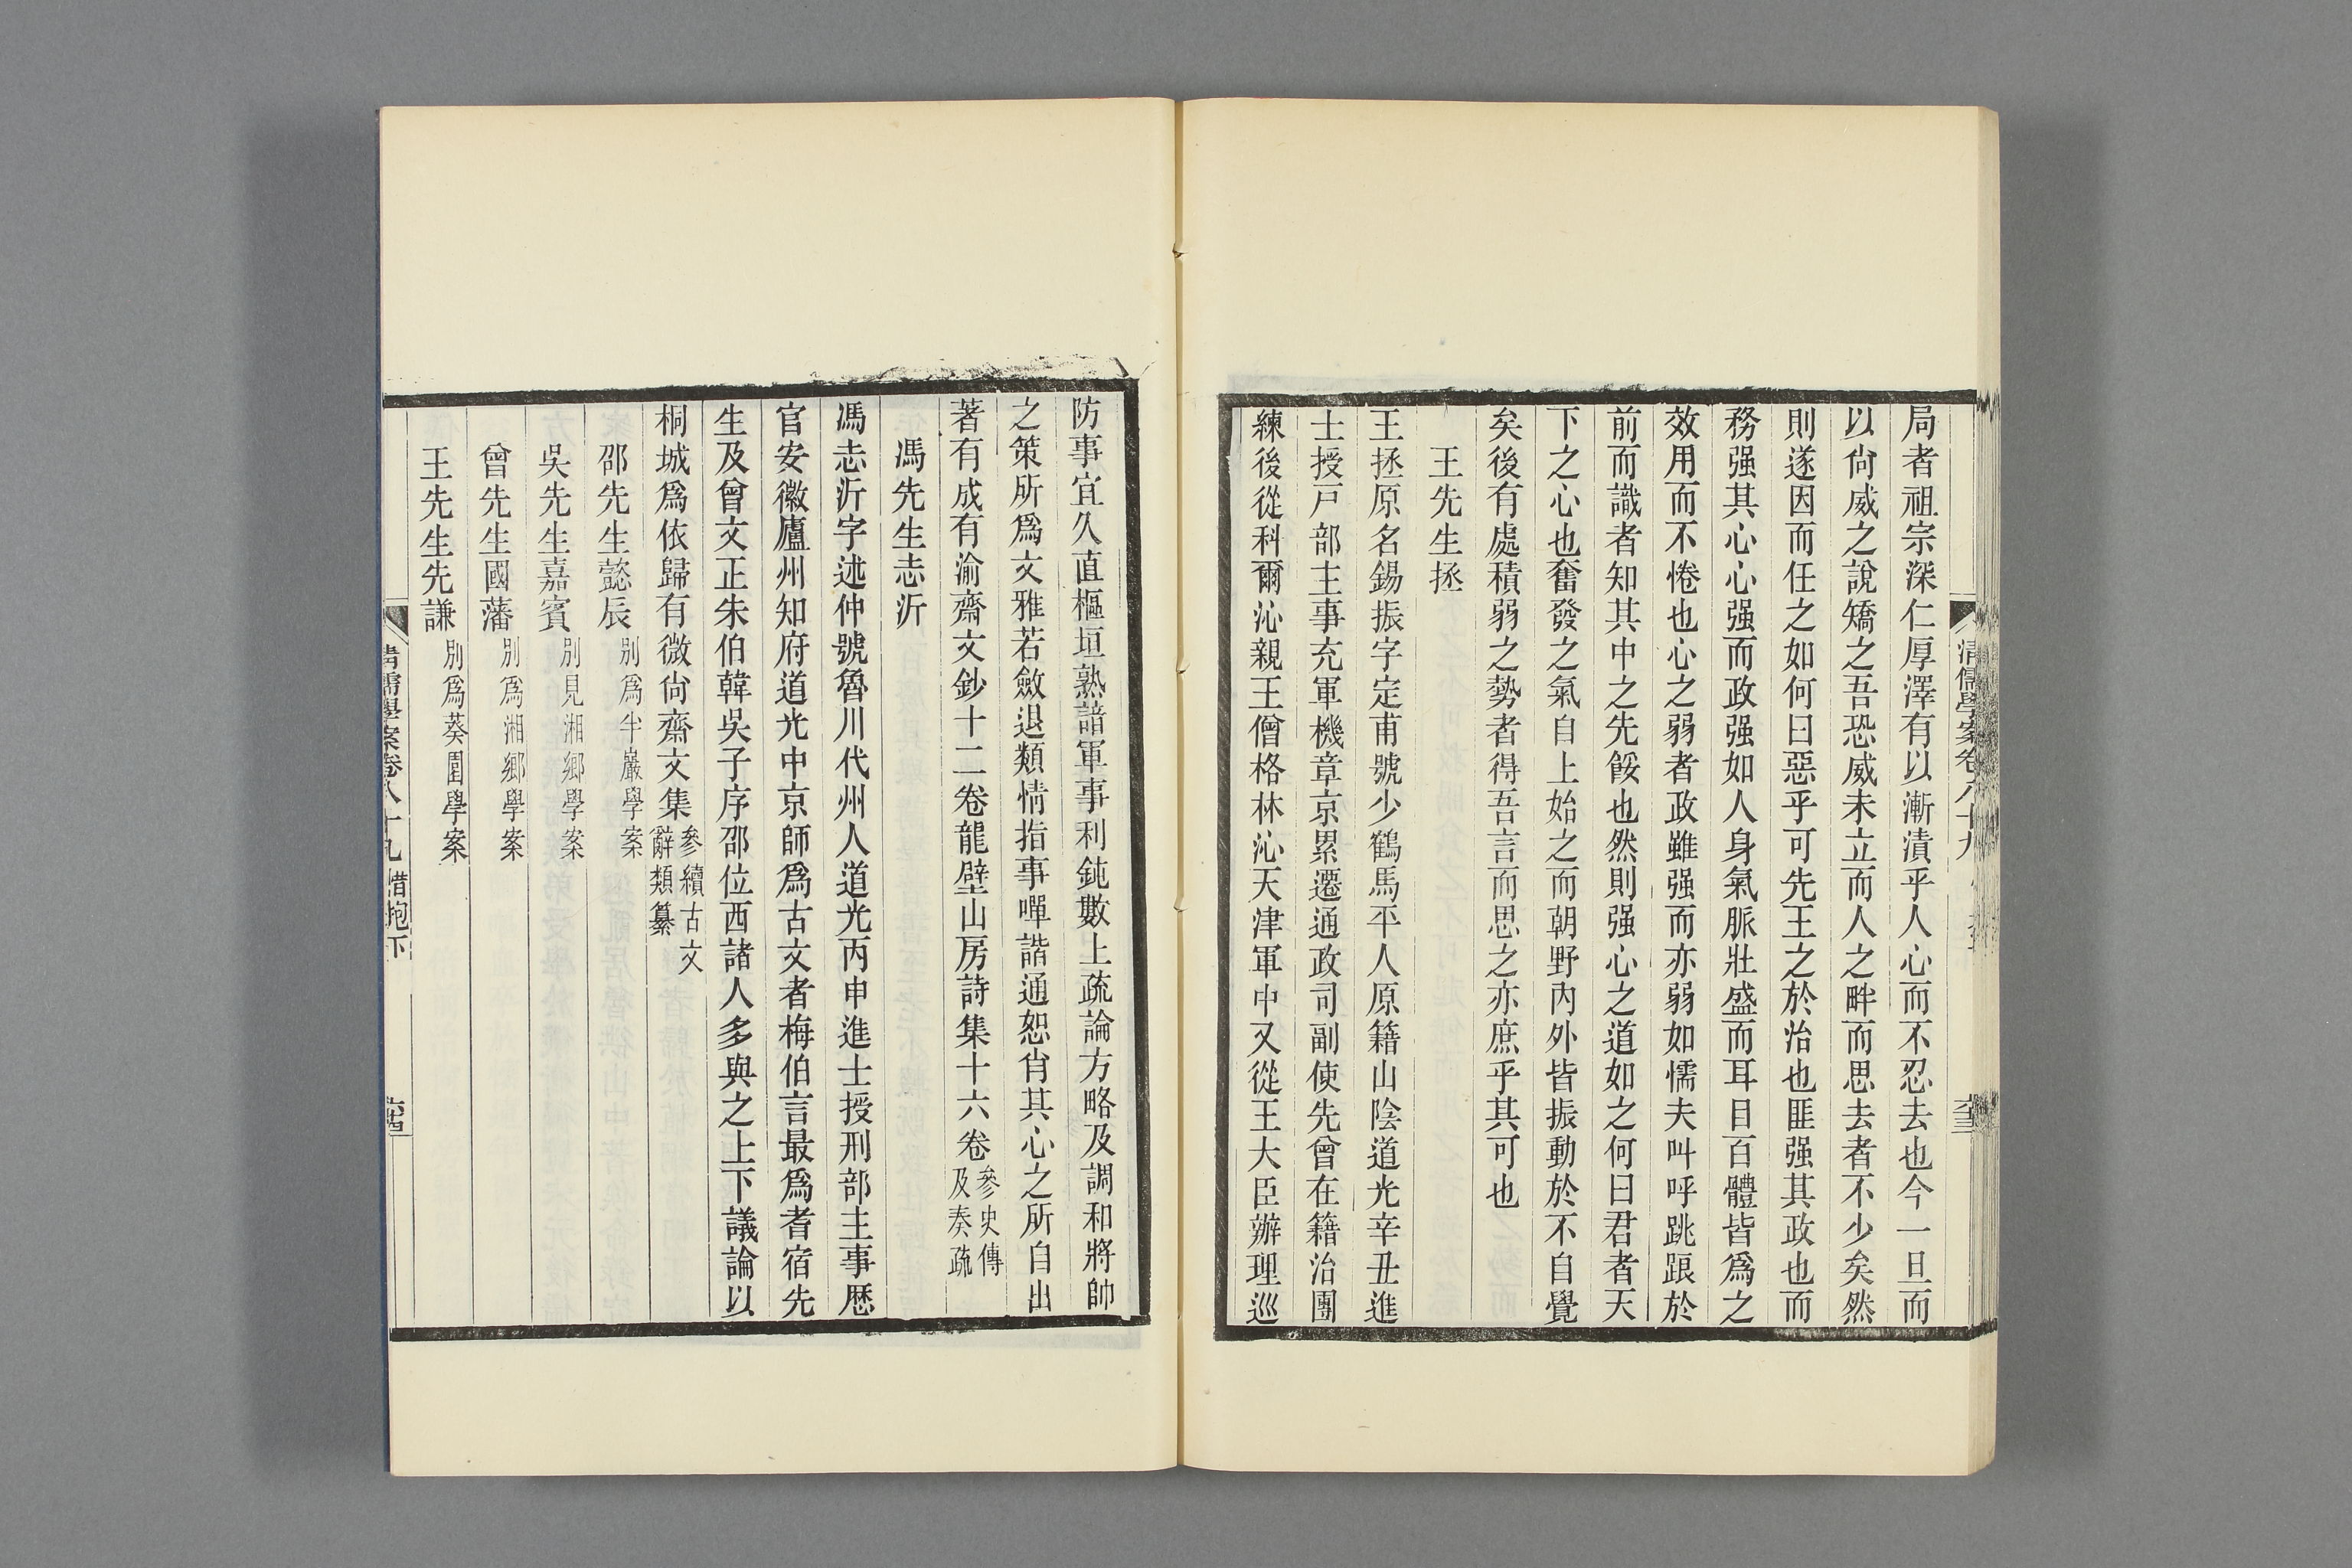 局者祖宗深仁厚澤有以漸漬乎人心而不忍去也今一旦而
以尙威之說矯之吾恐威未立而人之畔而思去者不少矣然
則遂因而任之如何曰惡乎可先王之於治也匪强其政也而
務强其心心强而政强如人身氣脈壯盛而耳目百體皆爲之
效用而不惓也心之弱者政雖强而亦弱如懦夫叫呼跳踉於
前而識者知其中之先餒也然則强心之道如之何曰君者天
下之心也奮發之氣自上始之而朝野內外皆振動於不自覺
矣後有處積弱之勢者得吾言而思之亦庶乎其可也
王先生拯
王拯原名錫振字定甫號少鶴馬平人原籍山陰道光辛丑進
士授戸部主事充軍機章京累遷通政司副使先曾在籍治團
練後從科爾沁親王僧格林沁天津軍中又從王大臣辦理巡
清儒學案卷八十九
防事宜久直樞垣熟諳軍事利鈍數上疏論方略及調和將帥
之策所爲文雅若斂退類情指事嘽諧通恕肖其心之所自出
著有成有渝齋文鈔十二卷龍壁山房詩集十六卷參史傳及奏疏
馮先生志沂
馮志沂字述仲號魯川代州人道光丙申進士授刑部主事歷
官安徽廬州知府道光中京師爲古文者梅伯言最爲者宿先
生及曾文正朱伯韓吳子序邵位西諸人多與之上下議論以
桐城爲依歸有微尙齋文集參續古文辭類纂
邵先生懿辰別爲半巖學案
吳先生嘉賓別見湘鄉學案
曾先生國藩別爲湘鄉學案
王先生先謙別爲葵園學案
清儒學案卷八十九 惜抱下